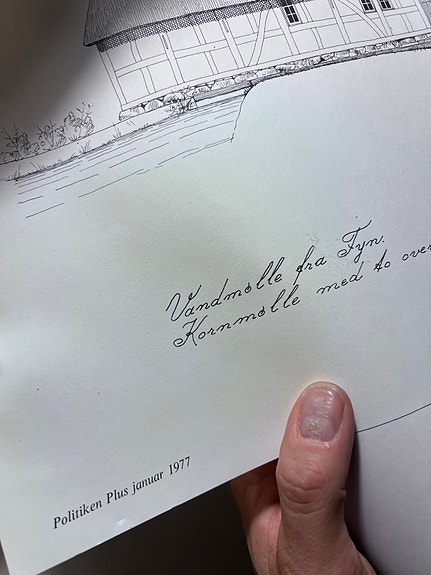 Vandmølle fra Fyn.
Kornmølle med to over
Politiken Plus januar 1977